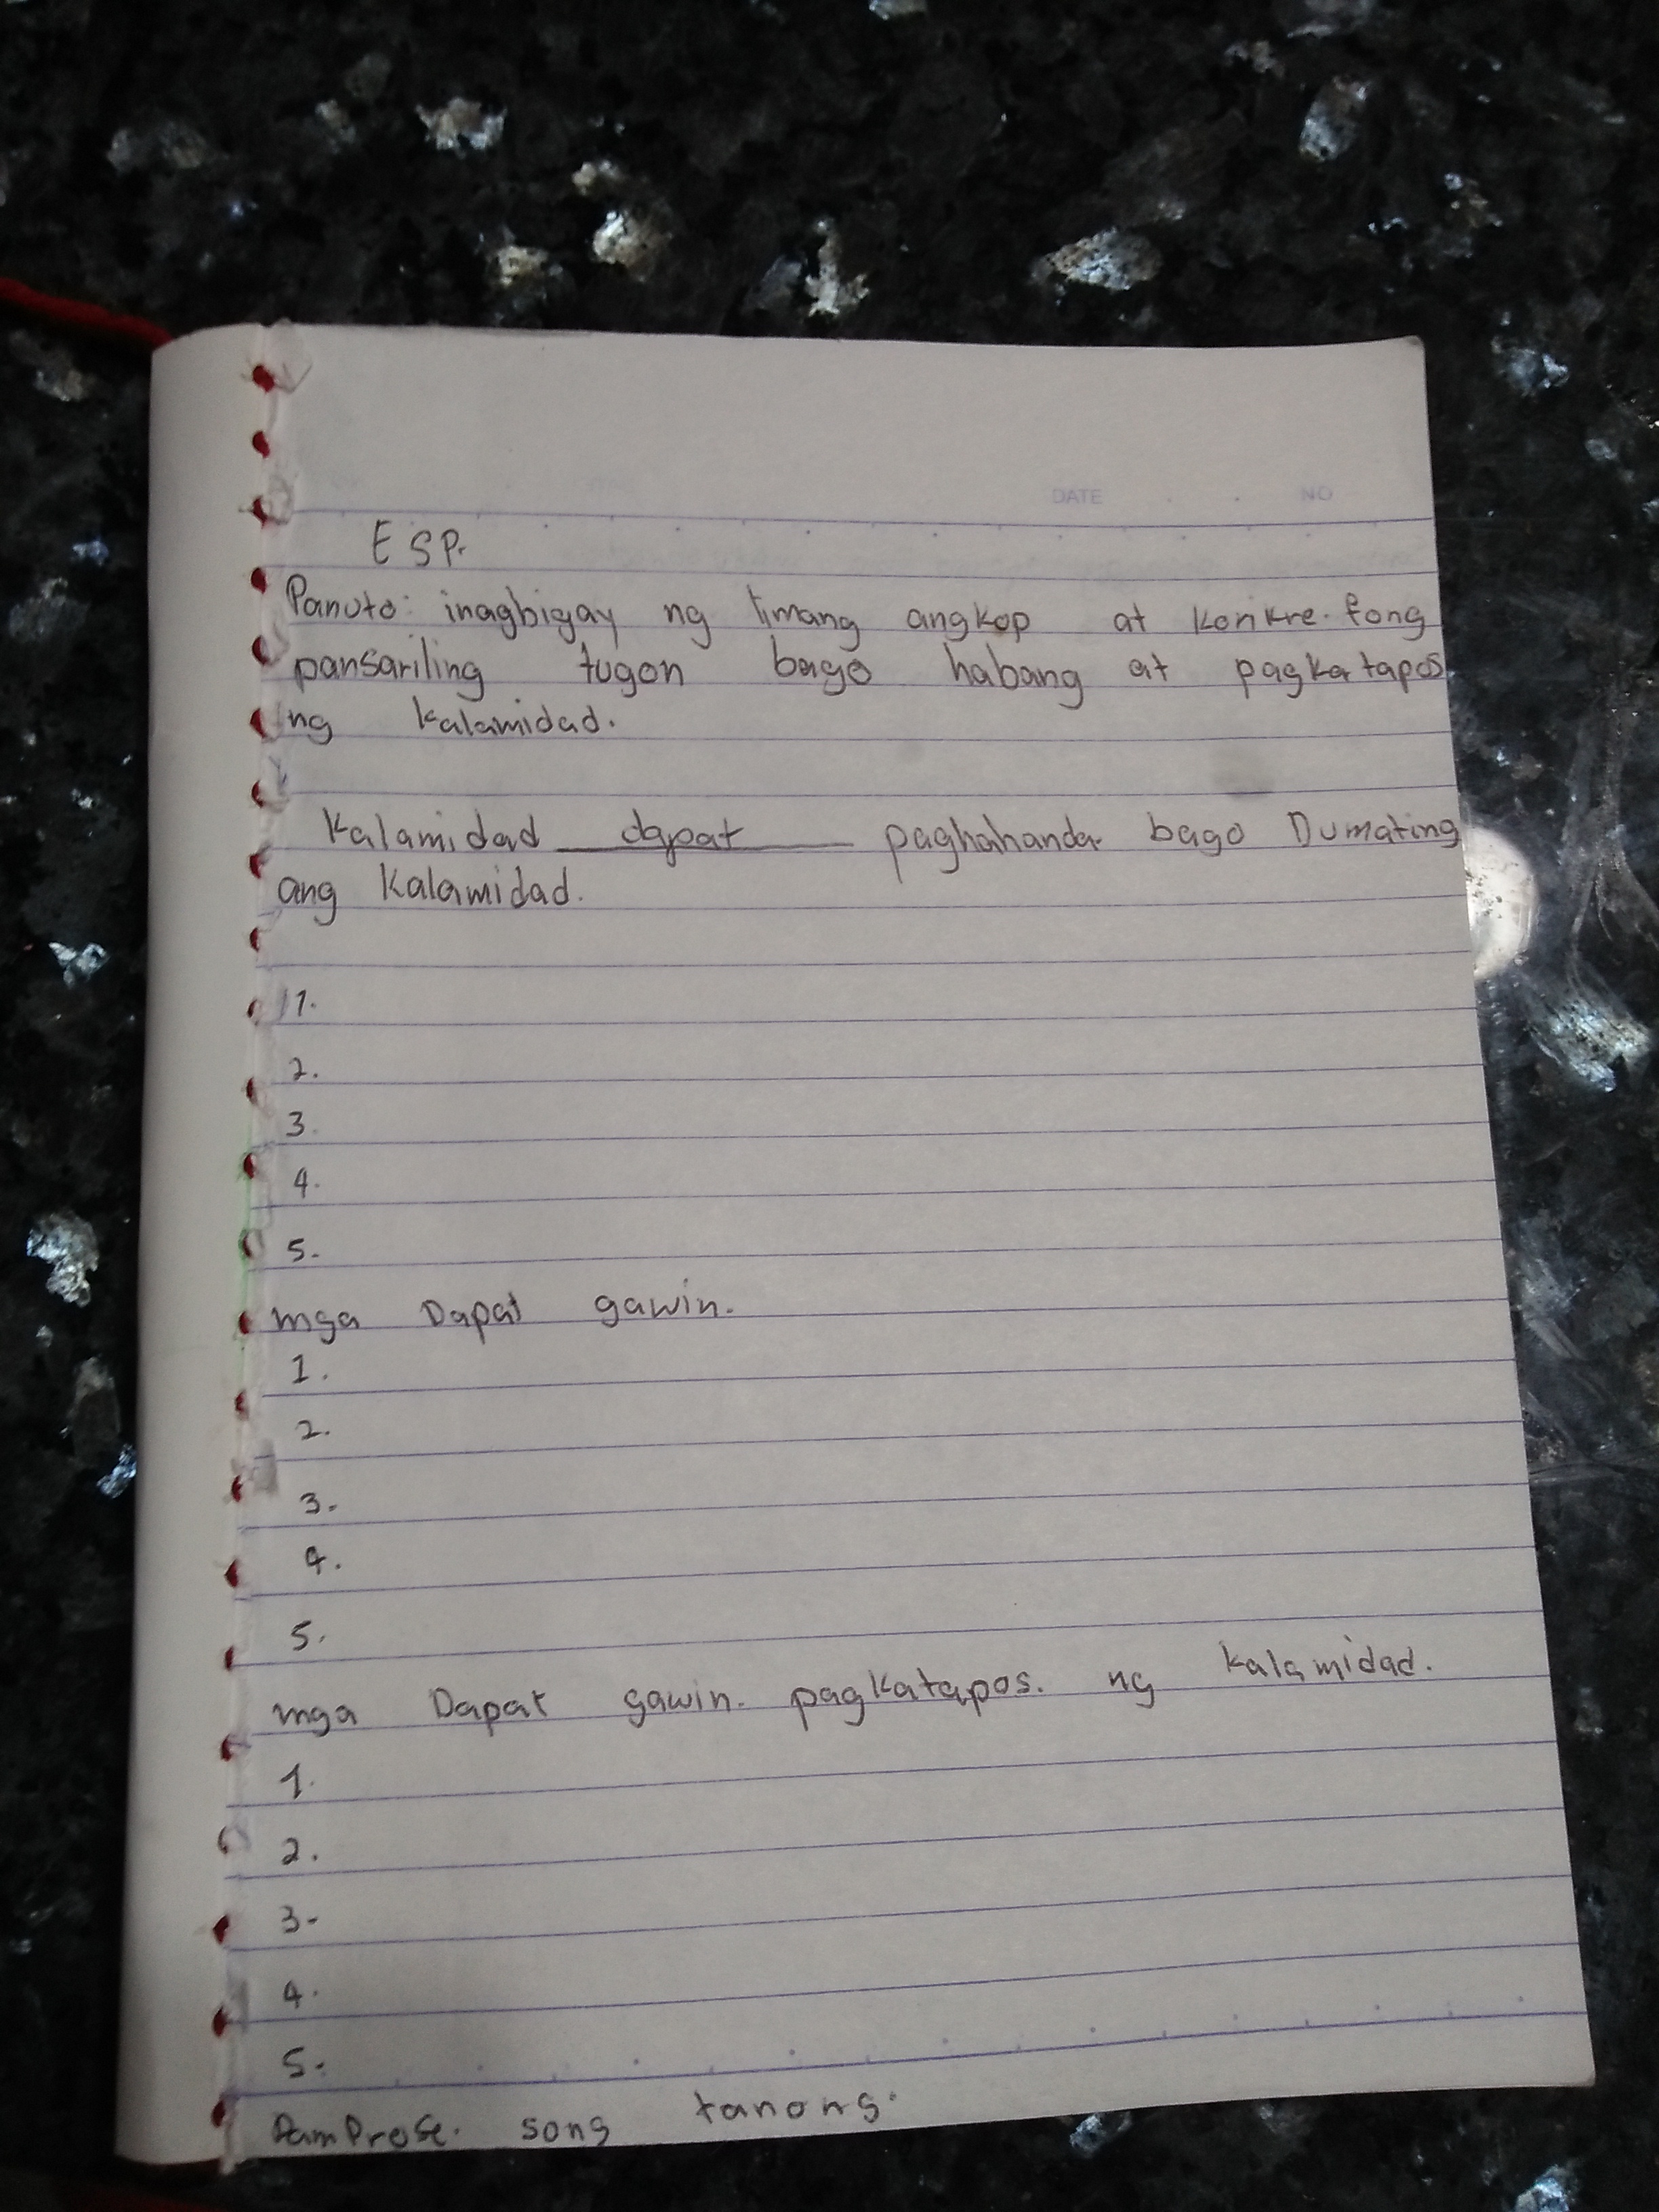 DATE NO
ESP.
Panuto: inagbigay ng limang angkop at konkre.tong
pansariling tugon bago habang at pagkatapos
ng kalamidad.
kalamidad dapat paghahanda bago Dumating
ang kalamidad.
1.
2.
3.
4.
5.
mga Dapat gawin.
1.
2.
3.
4.
5.
mga Dapat gawin. pagkatapos. ng kalamidad.
1.
2.
3-
4.
5.
song tanong.